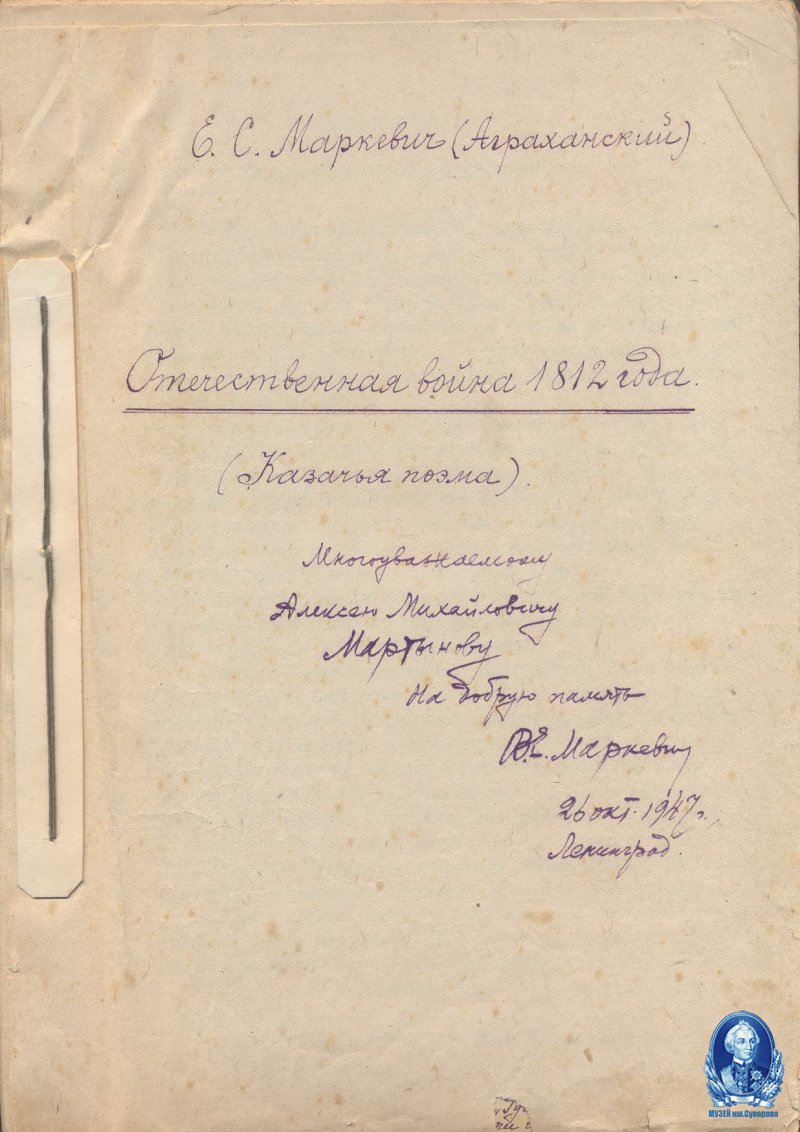 Е. С. Маркевич (Аграханский).
Отечественная война 1812 года.
(Казачья поэма).
Многоуважаемому
Алексею Михайловичу
Мартынову
на добрую память
В.Е. Маркевич
26 окт. 1947 г.
Ленинград.
МУЗЕЙ им.Суворова